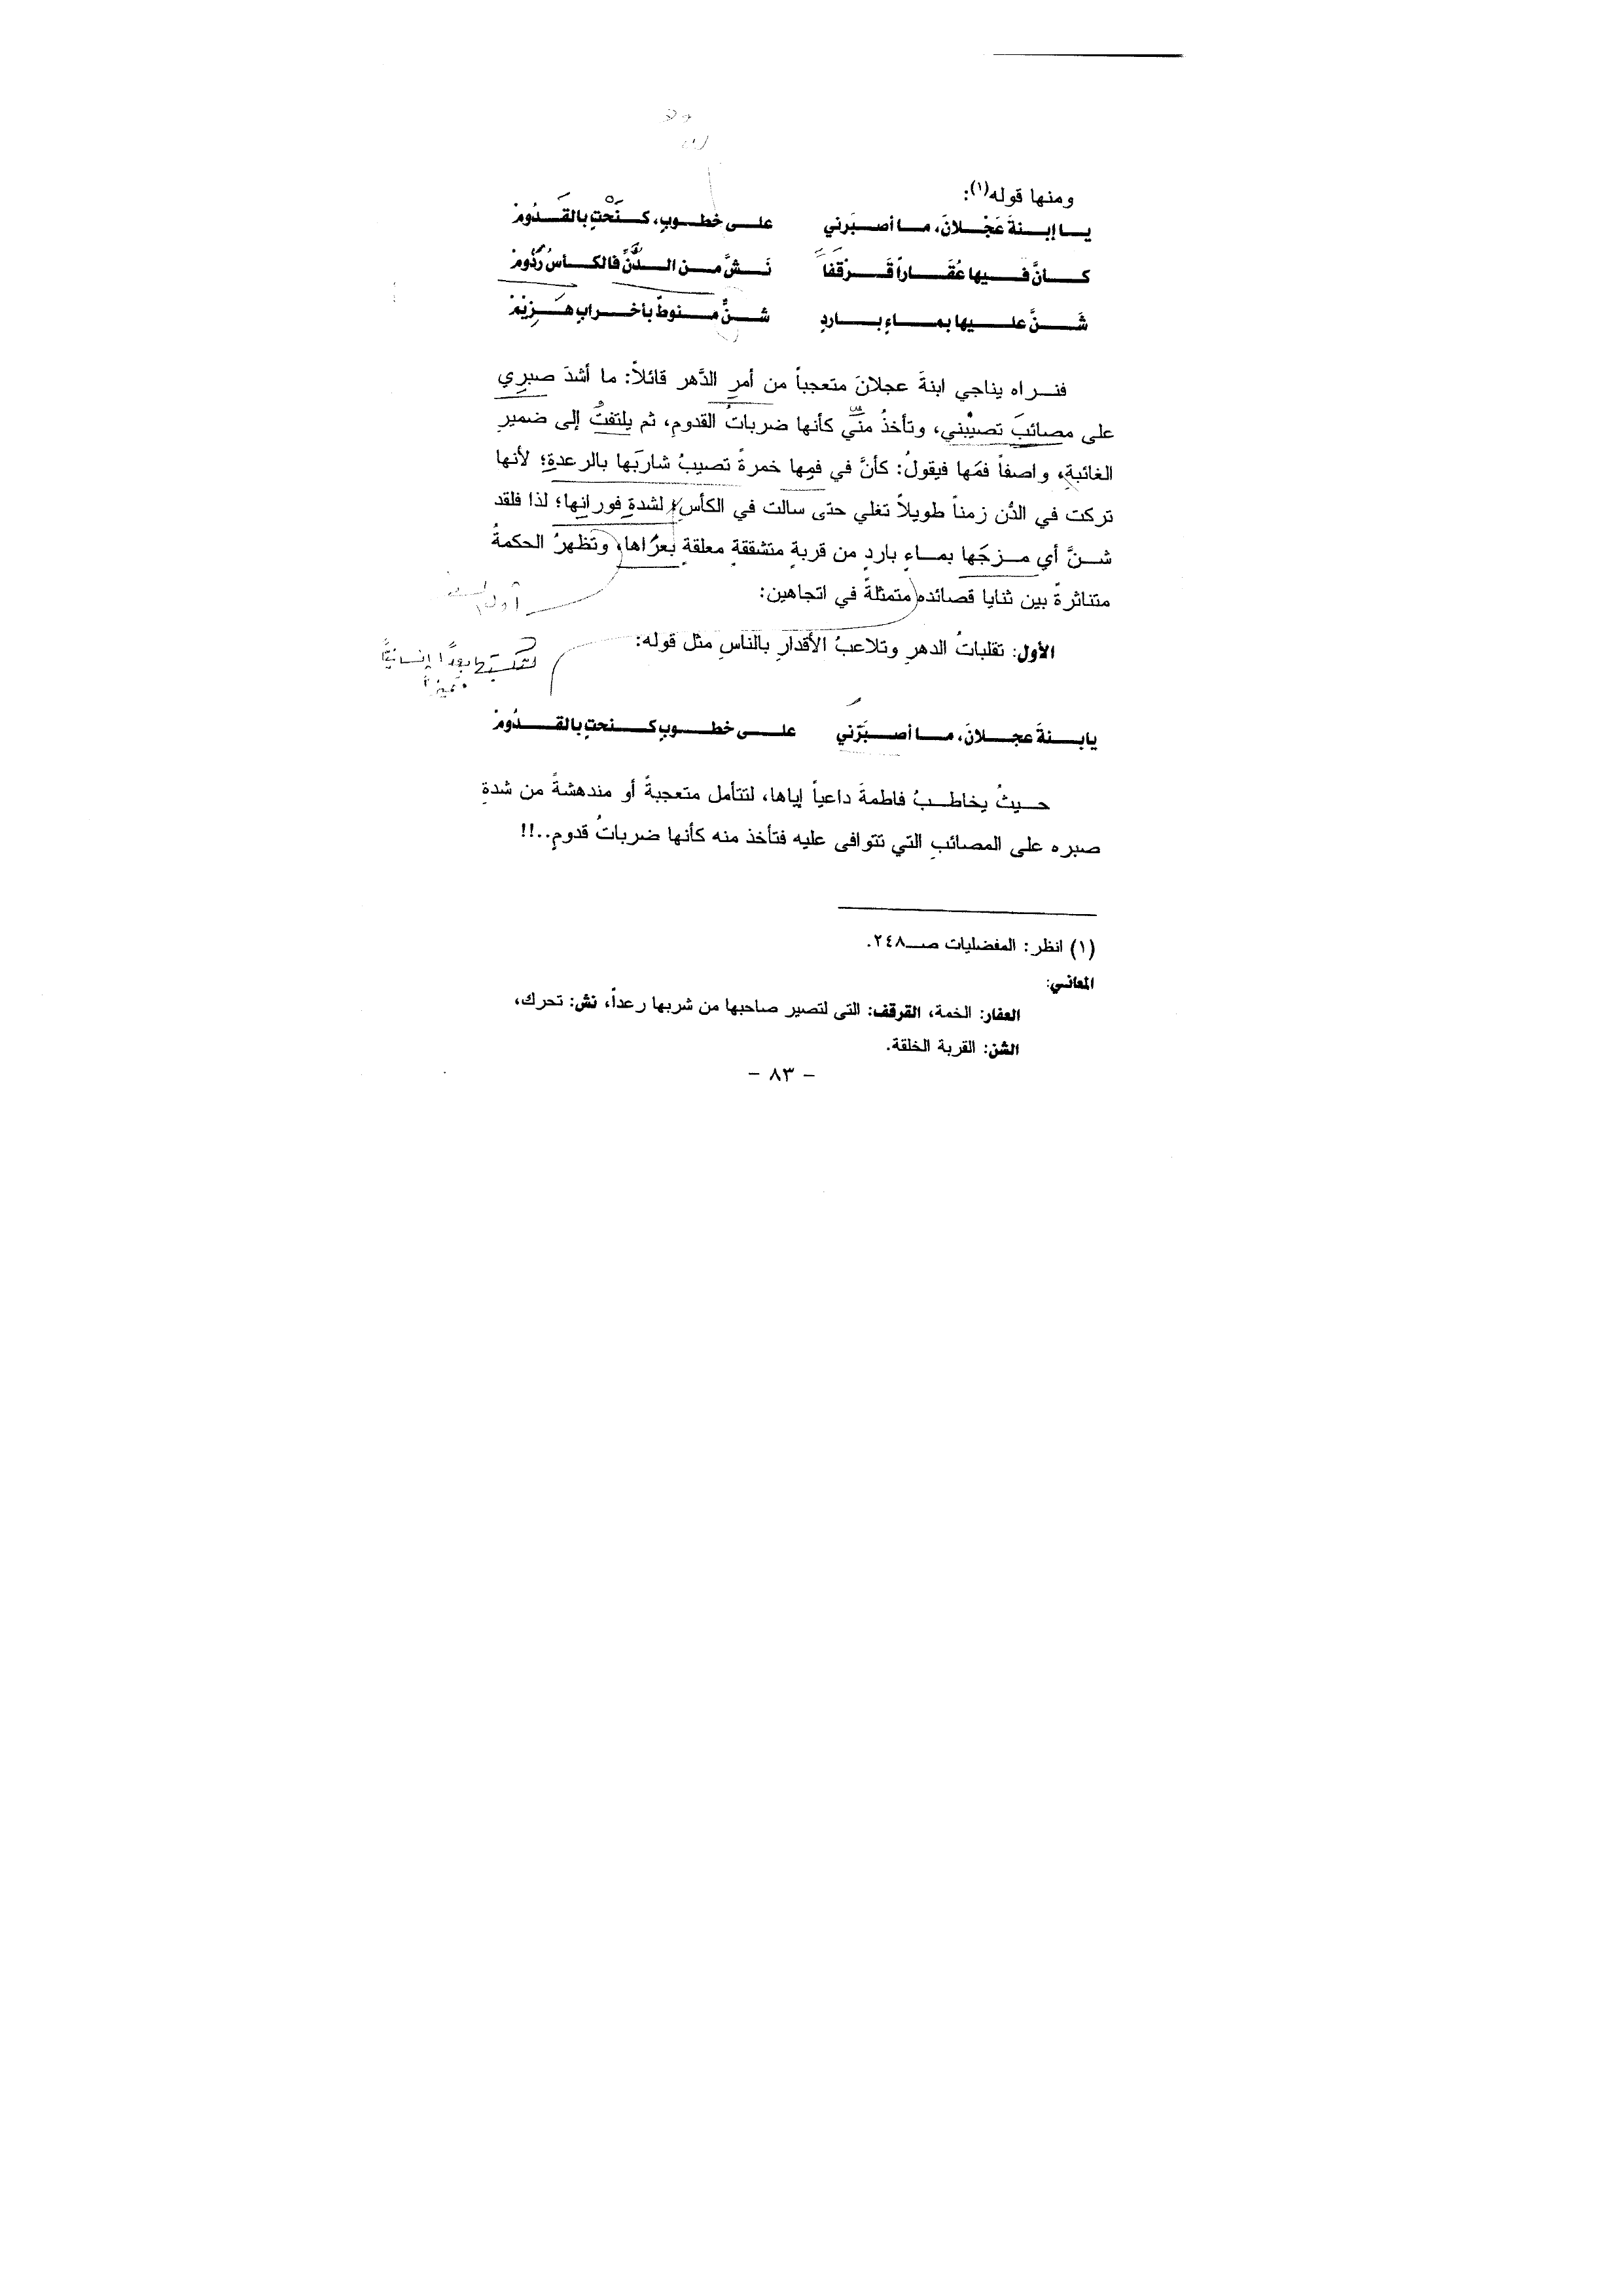 ومنها قوله(١):
يـا إبـنةَ عَجْـلانَ، مـا أصـبَرني على خطـوبٍ، كـنَحْتٍ بالقَـدُومْ
كـأنَّ فـيها عُقَـاراً قَـرْقَفاً نَـشَّ مـن الـدَّنِّ فالكـأسُ رَذُومْ
شَـنَّ علـيها بمـاءٍ بـاردٍ شـنٌّ مـنوطٌ بأخـرابٍ هَـزِيْمْ
فنـراه يناجي ابنةَ عجلانَ متعجباً من أمرِ الدَّهر قائلاً: ما أشدَ صبرِي
على مصائبَ تصيْبني، وتأخذُ منِّي كأنها ضرباتُ القدومِ، ثم يلتفتُ إلى ضميرِ
الغائبةِ، واصفاً فمَها فيقولُ: كأنَّ في فمِها خمرةً تصيبُ شاربَها بالرعدةِ؛ لأنها
تركت في الدُن زمناً طويلاً تغلي حتى سالت في الكأسِ لشدةِ فورانِها؛ لذا فلقد
شـنَّ أي مـزجَها بمـاءٍ باردٍ من قربةٍ متشققةٍ معلقةٍ بعرُاها، وتظهرُ الحكمةُ
متناثرةً بين ثنايا قصائده متمثلةً في اتجاهين:
الأول: تقلباتُ الدهرِ وتلاعبُ الأقدارِ بالناسِ مثل قوله:
لتكسبها بعدًا إنسانيًّا
مميزاً
يابـنةَ عجـلانَ، مـا أصـبَرَني علـى خطـوبٍ كـنحتٍ بالقـدُومْ
حـيثُ يخاطـبُ فاطمةَ داعياً إياها، لتتأمل متعجبةً أو مندهشةً من شدةِ
صبره على المصائبِ التي تتوافى عليه فتأخذ منه كأنها ضرباتُ قدومٍ..!!
(١) انظر: المفضليات صـ٢٤٨.
المعاني:
العقار: الخمة، القرقف: التى لتصير صاحبها من شربها رعداً، نش: تحرك،
الشن: القربة الخلقة.
- ٨٣ -